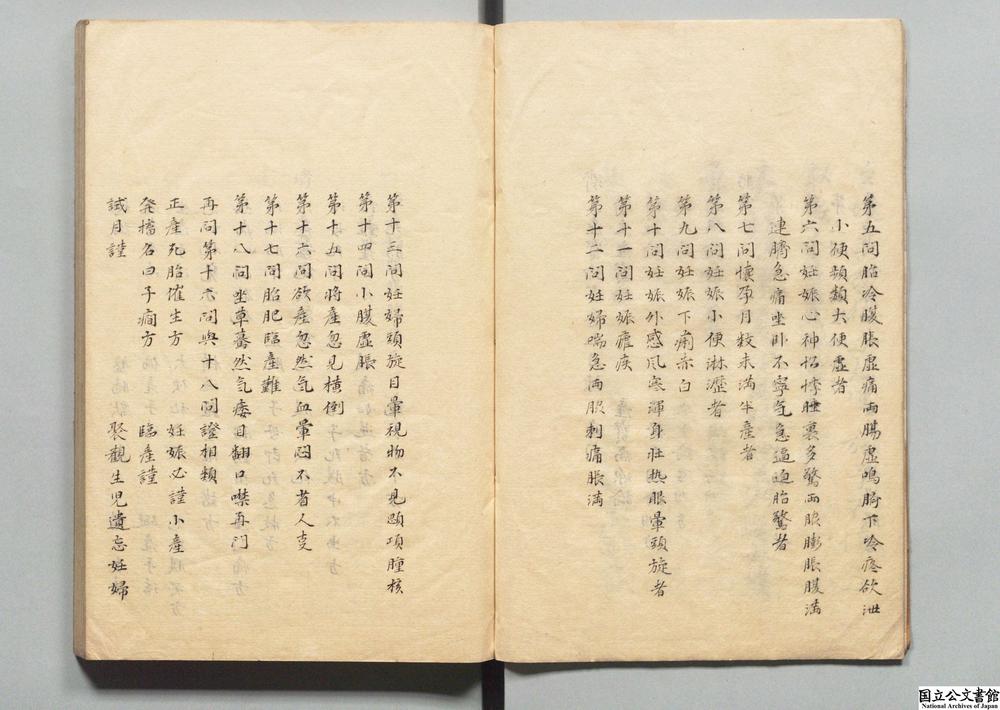 第五問胎冷腹脹虚痛両腸虚鳴臍下冷疼欲泄
小便頻類大便虚者
第六問妊娠心神忪悸睡裏多驚両脹膨脹腹満
連臍急痛坐卧不寧气急逼迫胎驚者
第七問懐孕月数未満半産者
第八問妊娠小便淋瀝者
第九問妊娠下痢赤白
第十問妊娠外感風寒渾身壮热眼暈頭旋者
第十一問妊娠瘧疾
第十二問妊婦喘急両服刺痛脹満
第十三問妊婦頭旋目暈視物不見顋項腫核
第十四問小腹虚脹
第十五問将産忽見横倒
第十六問欲産忽然气血暈悶不省人
第十七問胎肥臨産難
第十八問坐草驀然气痿目翻口噤再问
再問第十六問與十八問證相類
正産死胎催生方　妊娠必謹小産
発搐名曰子癇方　臨産謹
試月謹　聚觀生児遺忘妊婦
国立公文書館
National Archives of Japan